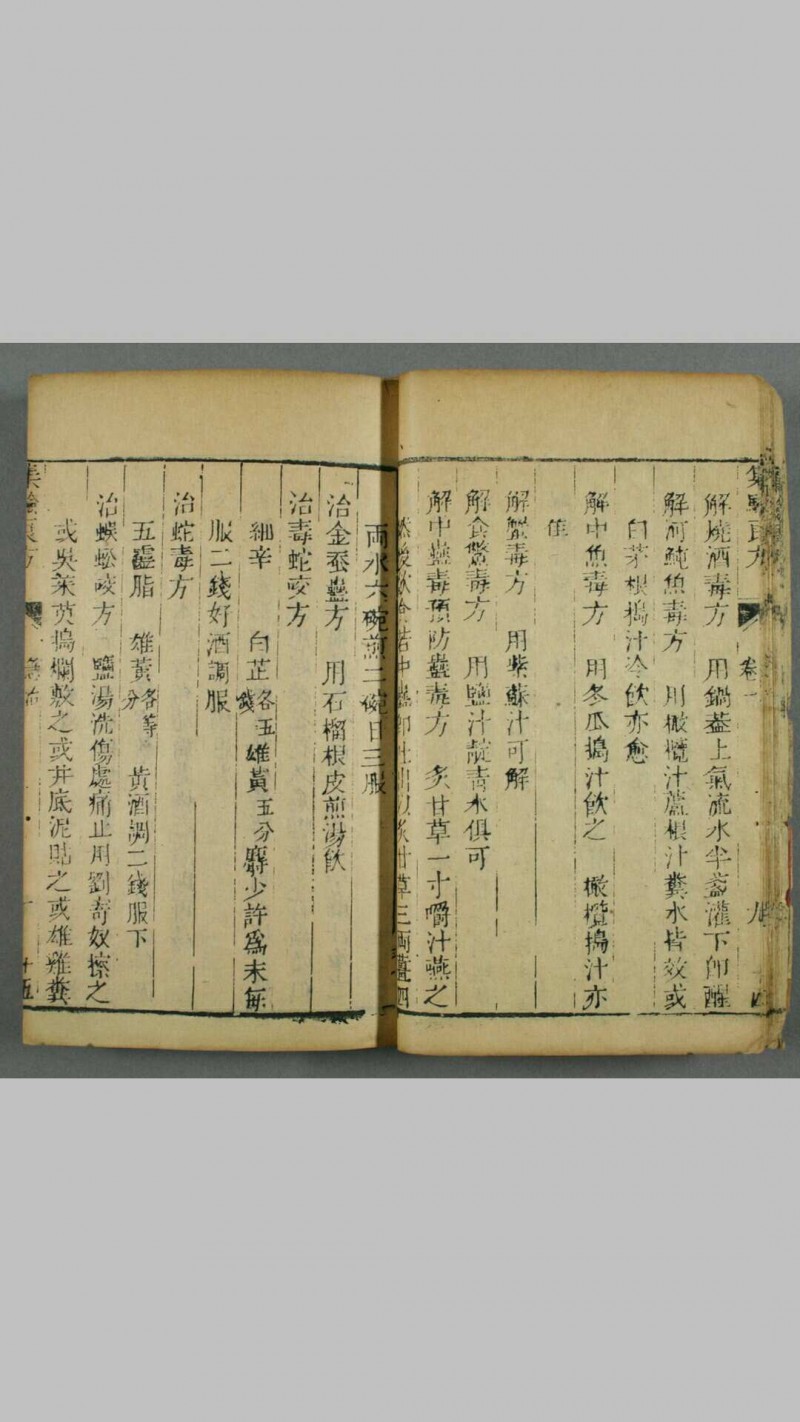 集驗良方 卷一
解燒酒毒方 用鍋葢上氣流水半盞灌下卽醒
解河魨魚毒方 用橄欖汁蘆根汁糞水皆效或
白茅根搗汁冷飲亦愈
解中魚毒方 用冬瓜搗汁飲之 橄欖搗汁亦
佳
解蟹毒方 用紫蘇汁可解
解食鱉毒方 用鹽汁靛青水俱可
解中蠱毒預防蠱毒方 炙甘草一寸嚼汁嚥之
然後飲食若中蠱卽吐出以炙甘草三兩薑四
兩水六碗煎二碗日三服
治金蚕蠱方 用石榴根皮煎湯飲
治毒蛇咬方
細辛 白芷各五錢 雄黃五分 麝少許爲末每
服二錢好酒調服
治蛇毒方
五靈脂 雄黃各等分 黃酒調二錢服下
治蜈蚣咬方 鹽湯洗傷處痛止用劉寄奴擦之
或吳茱萸搗爛敷之或井底泥貼之或雄雞糞
集驗良方
十五